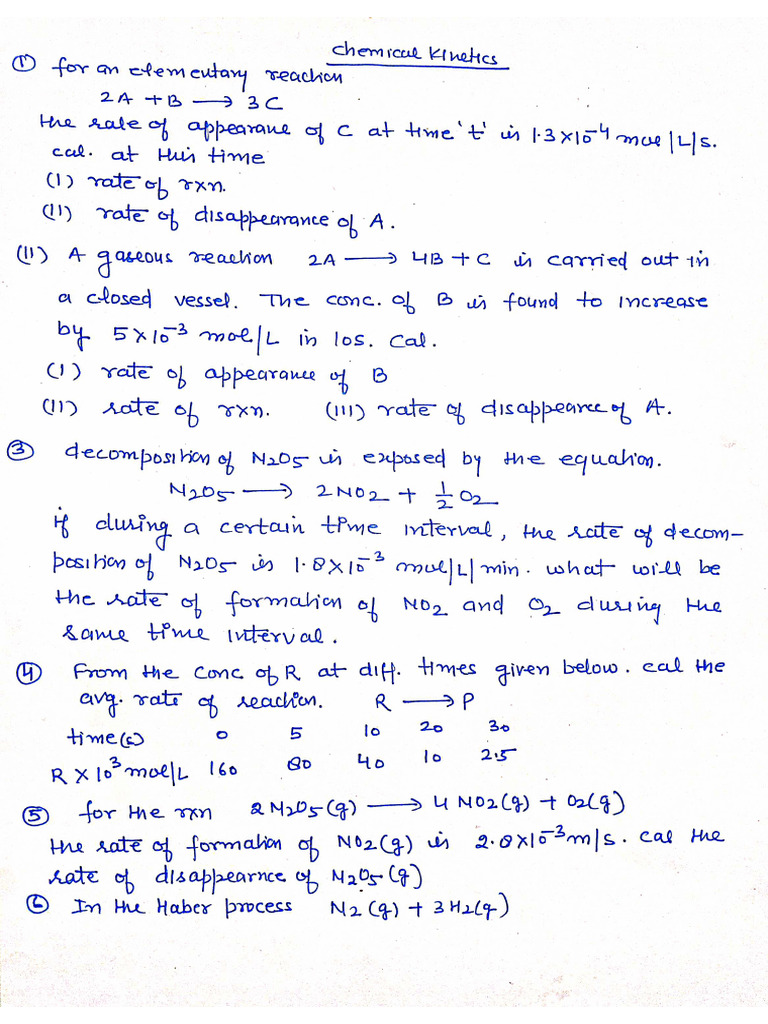 Chemical Kinetics
① for an elementary reaction
2A + B ⟶ 3C
the rate of appearane of C at time 't' is 1.3×10⁻⁴ mol/L/s.
cal. at this time
(I) rate of rxn.
(II) rate of disappearance of A.
(II) A gaseous reaction 2A ⟶ 4B + C is carried out in
a closed vessel. The conc. of B is found to increase
by 5×10⁻³ mol/L in 10s. Cal.
(I) rate of appearance of B
(II) rate of rxn. (III) rate of disappearce of A.
③ decomposition of N2O5 is exposed by the equation.
N2O5 ⟶ 2NO2 + ½O2
if during a certain time interval, the rate of decom-
position of N2O5 is 1.8×10⁻³ mol/L/min. what will be
the rate of formation of NO2 and O2 during the
same time interval.
④ From the conc of R at diff. times given below. cal the
avg. rate of reaction. R ⟶ P
time(s) 0 5 10 20 30
R×10³ mol/L 160 80 40 10 2.5
⑤ for the rxn 2N2O5(g) ⟶ 4NO2(g) + O2(g)
the rate of formation of NO2(g) is 2.8×10⁻³ m/s. cal the
rate of disappearnce of N2O5(g)
⑥ In the Haber process N2(g) + 3H2(g)